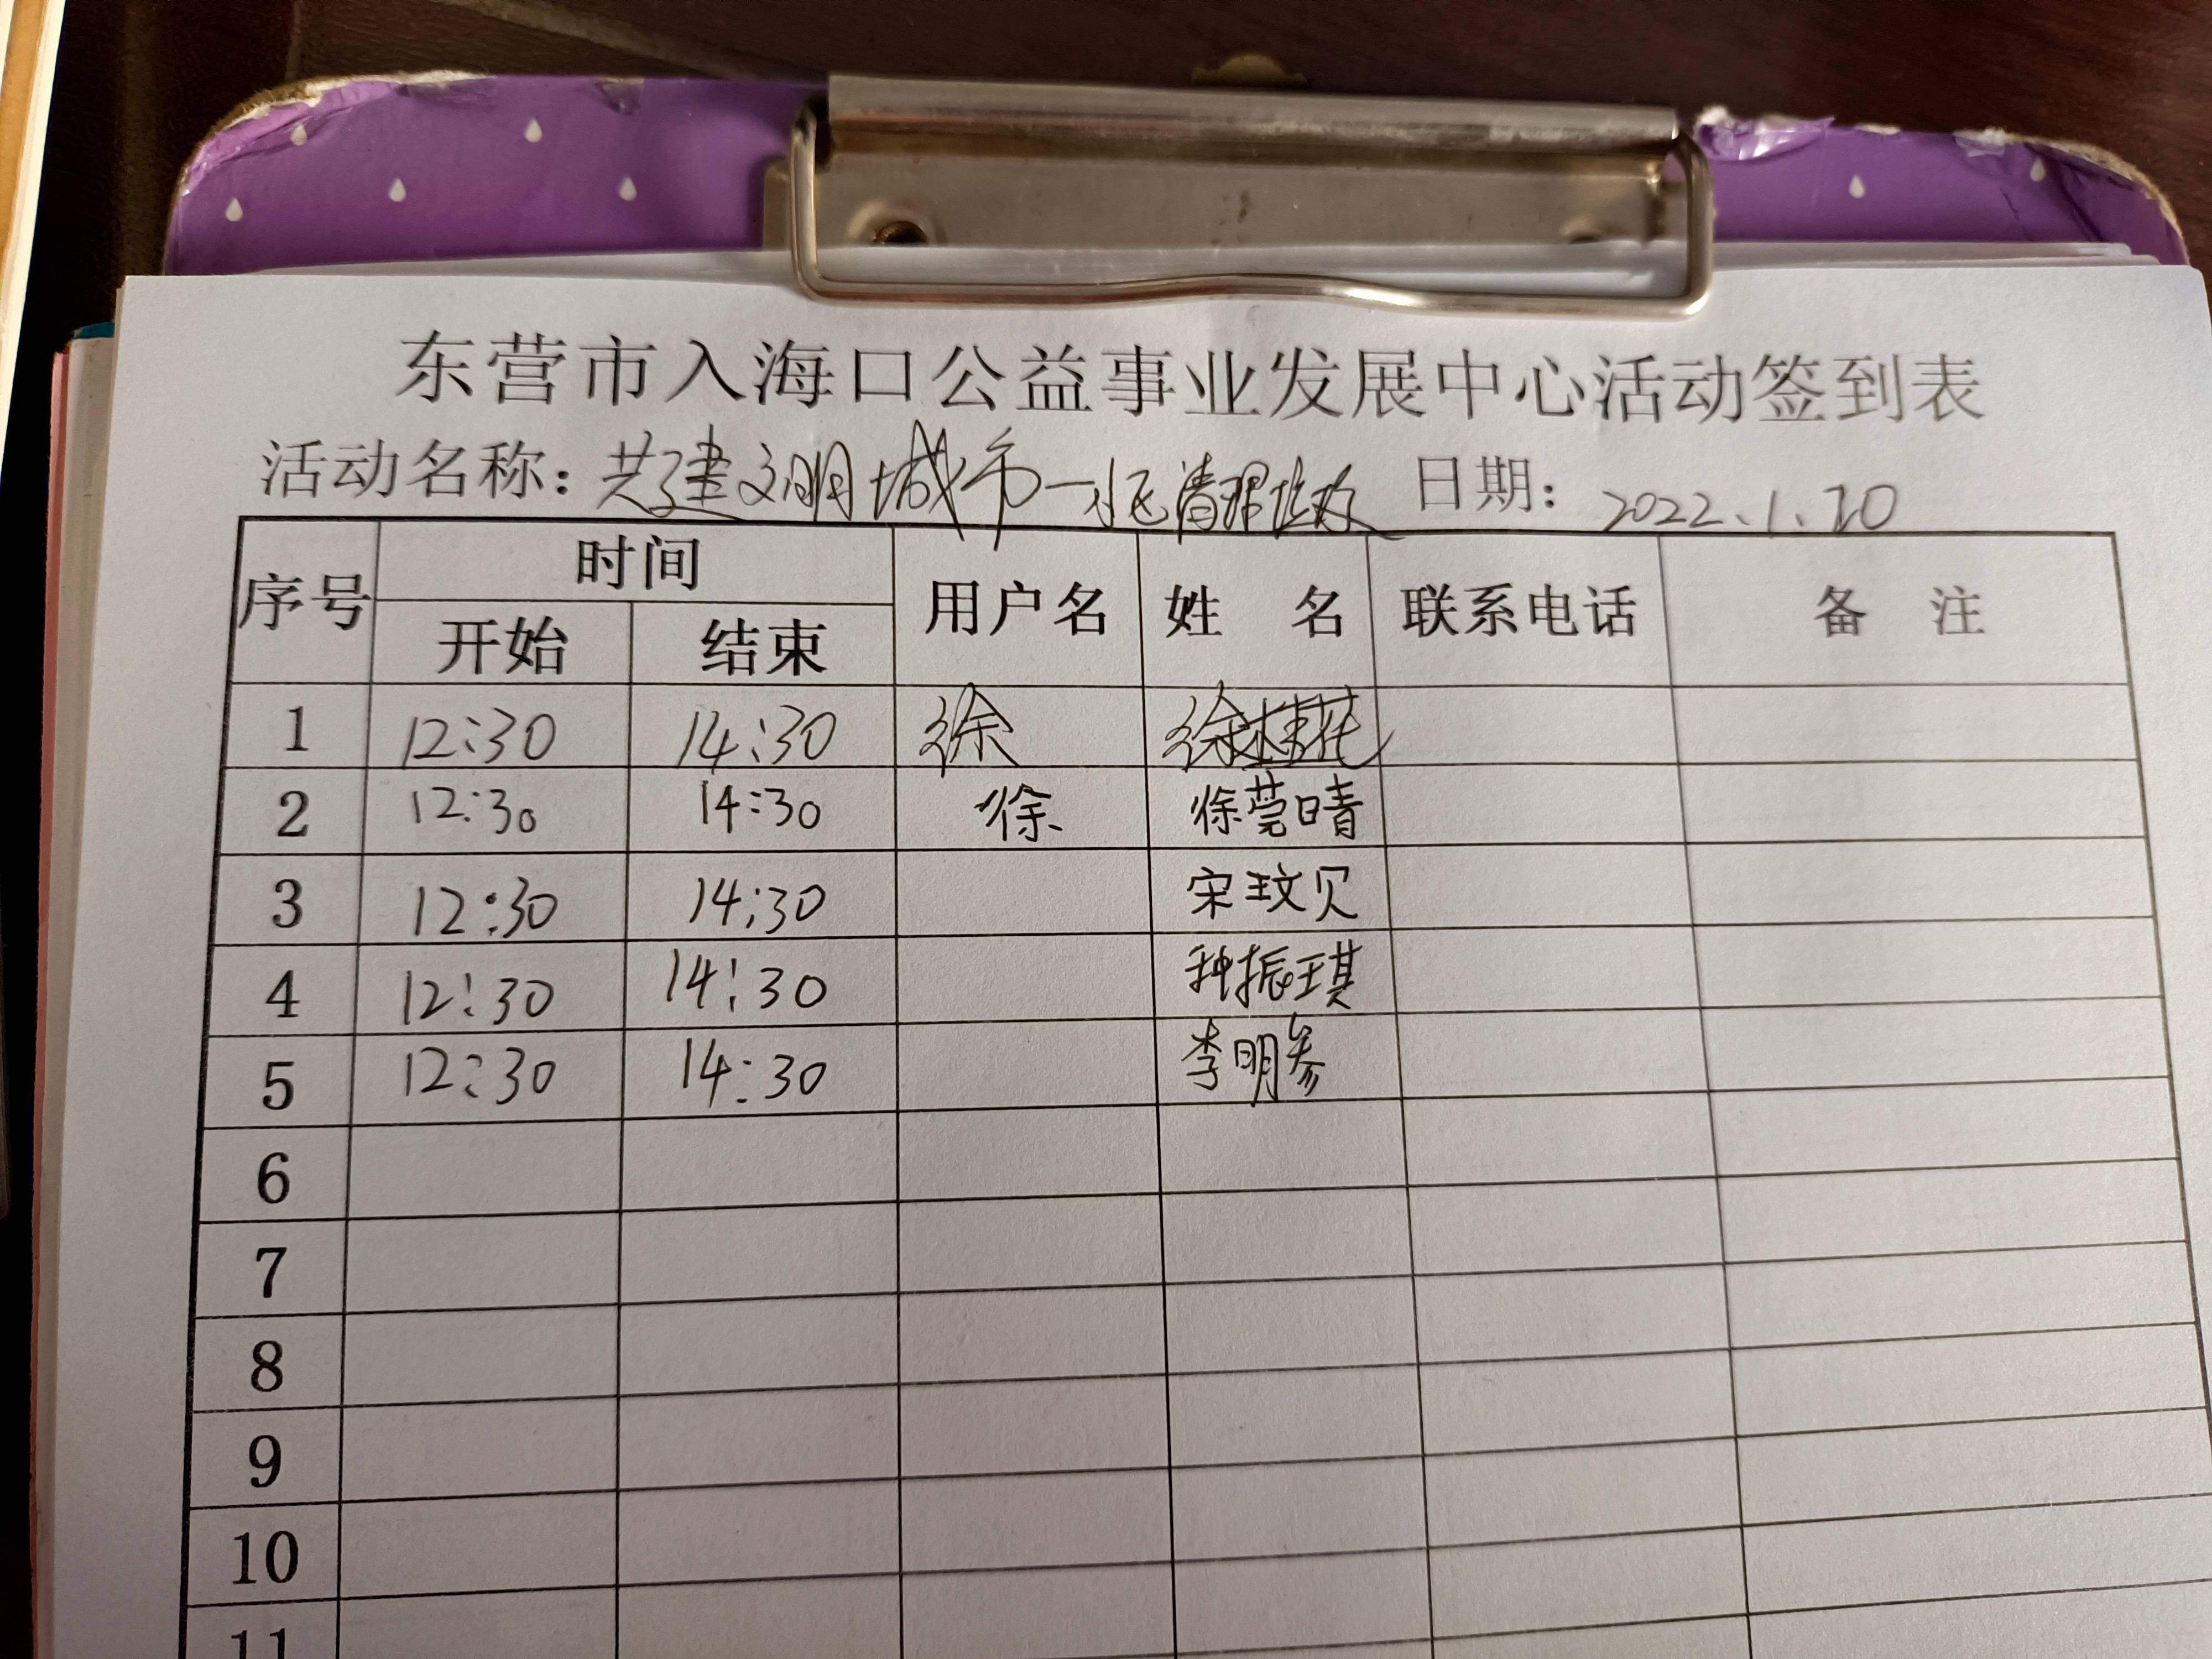 东营市入海口公益事业发展中心活动签到表
活动名称：共建文明城市—小区清理垃圾 日期：2022.1.20
序号 时间 用户名 姓 名 联系电话 备 注
开始 结束
1 12:30 14:30 徐 徐桂花
2 12:30 14:30 徐 徐莞晴
3 12:30 14:30 宋玟贝
4 12:30 14:30 种振琪
5 12:30 14:30 李明参
6
7
8
9
10
11